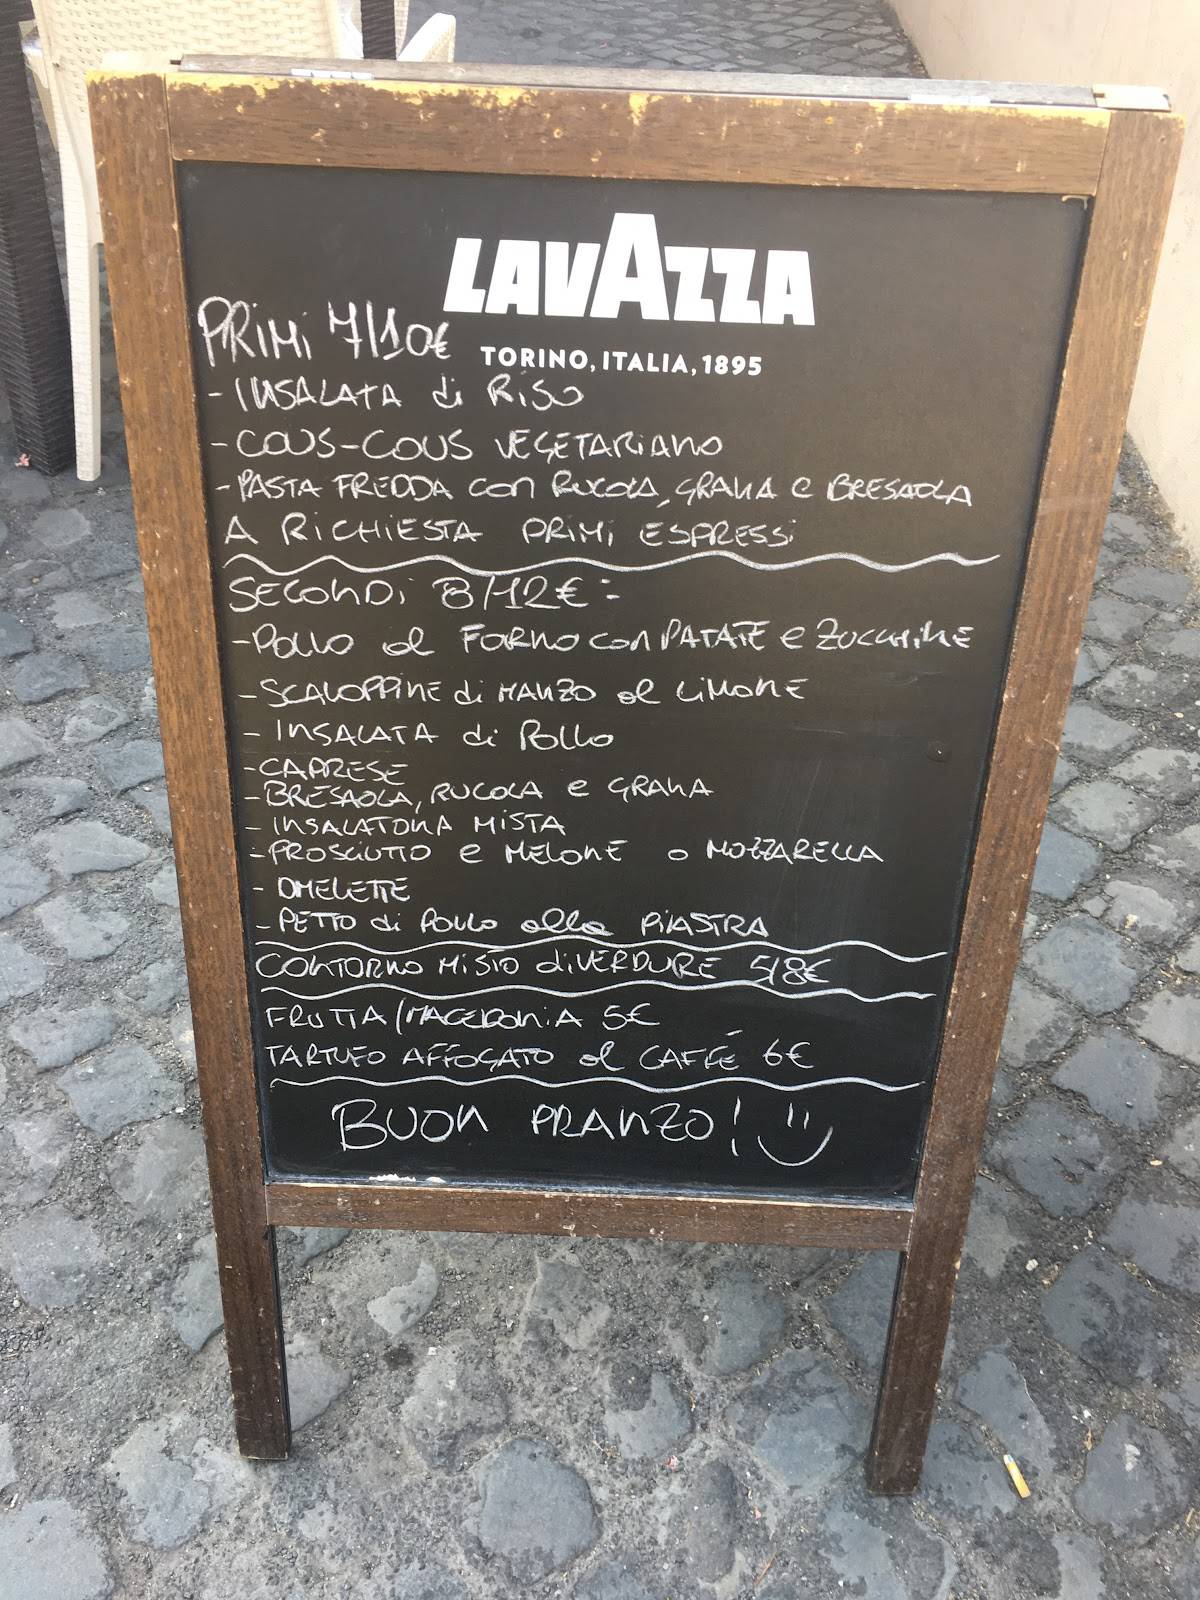 LAVAZZA
TORINO, ITALIA, 1895
PRIMI 7/10€
- INSALATA di RISO
- COUS-COUS VEGETARIANO
- PASTA FREDDA con RUCOLA, GRANA e BRESAOLA
A RICHIESTA PRIMI ESPRESSI
SECONDI 8/12€:
- Pollo al FORNO con PATATE e ZUCCHINE
- SCALOPPINE di MANZO al LIMONE
- INSALATA di Pollo
- CAPRESE
- BRESAOLA, RUCOLA e GRANA
- INSALATONA MISTA
- PROSCIUTTO e MELONE o MOZZARELLA
- OMELETTE
- PETTO di POLLO alla PIASTRA
CONTORNO MISTO di VERDURE 5/8€
FRUTTA/MACEDONIA 5€
TARTUFO AFFOGATO al CAFFÉ 6€
BUON PRANZO!